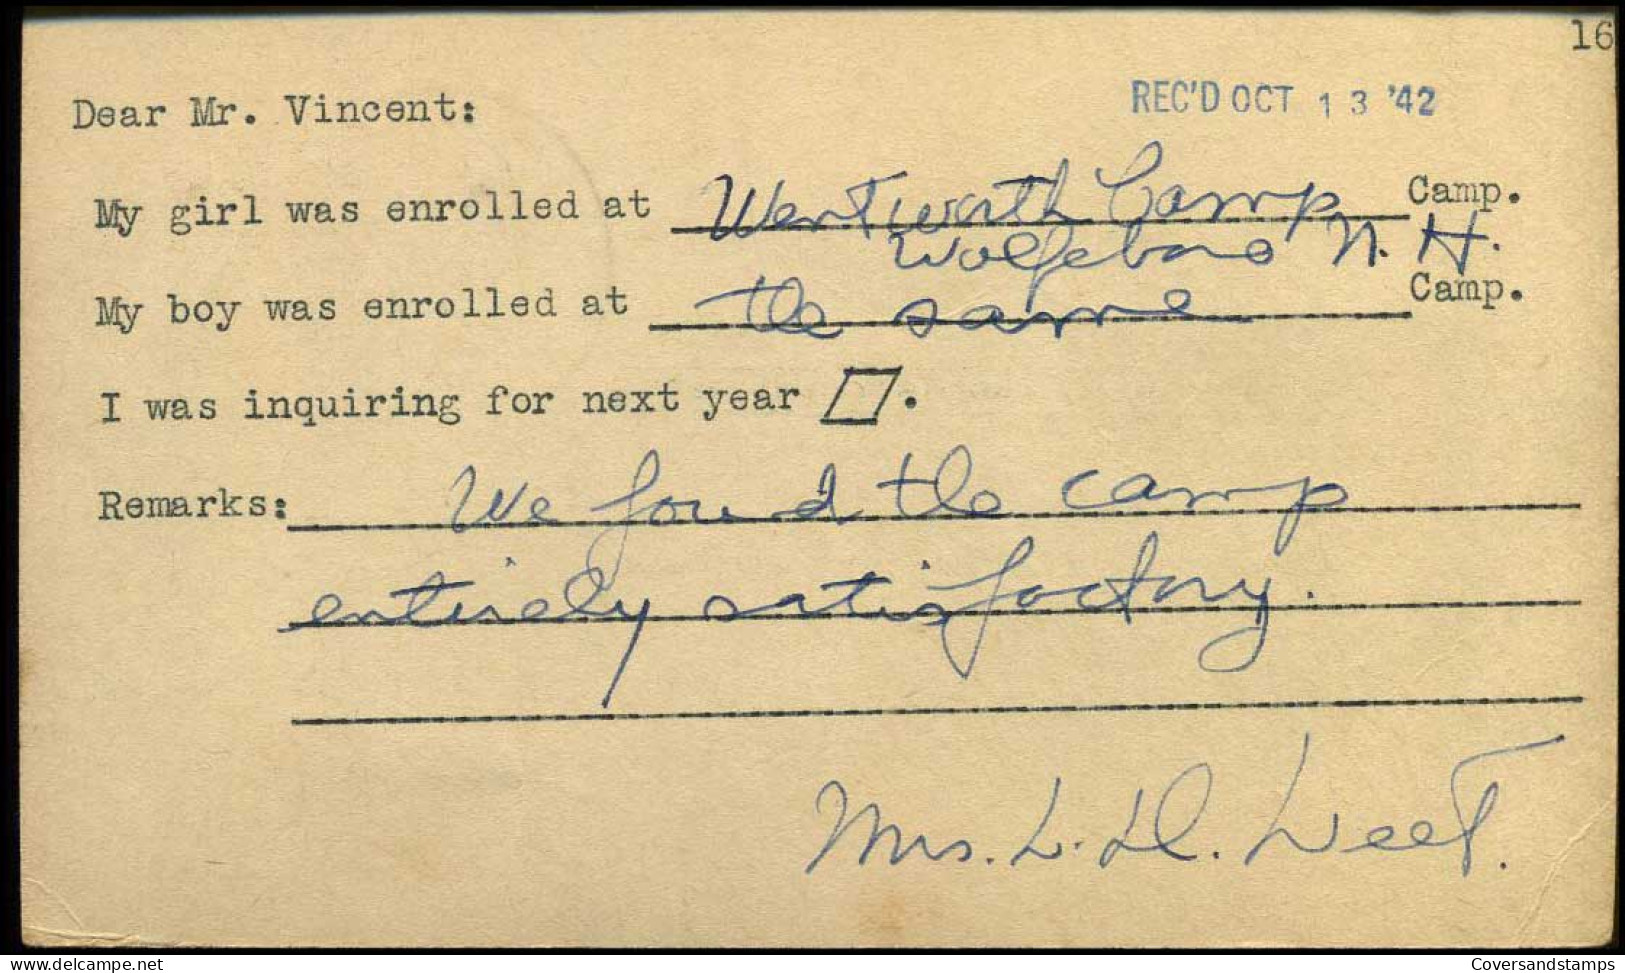 16
REC'D OCT 13 '42
Dear Mr. Vincent:
My girl was enrolled at Wentworth Camp Camp.
Wolfeboro N. H.
My boy was enrolled at the same Camp.
I was inquiring for next year .
Remarks: We found the camp
entirely satisfactory.
Mrs. L. D. Leet.
delcampe.net
Coversandstamps